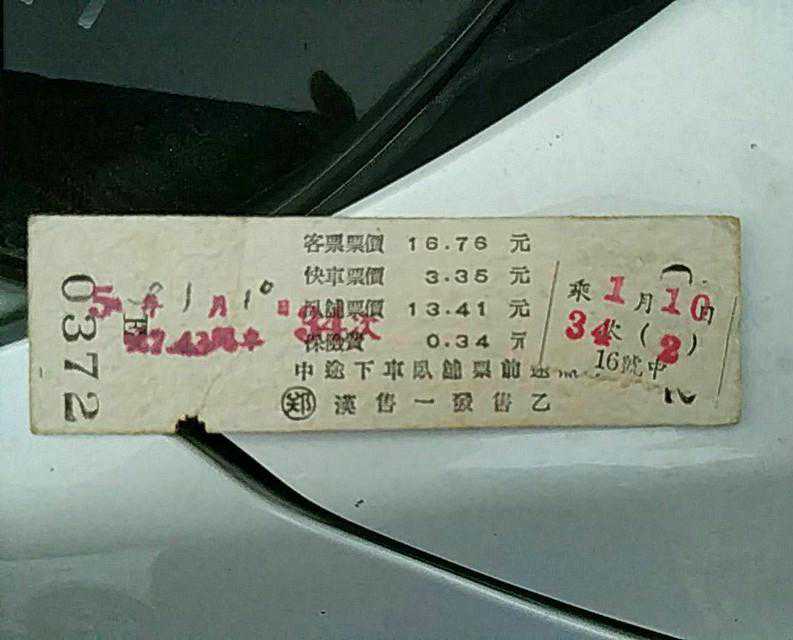 客票票價 16.76 元
快車票價 3.35 元
臥舖票價 13.41 元
保險費 0.34 元
中途下車臥舖票前途
鄭 漢售一發售乙
0372
5年 1月10日
7.43開車
34次
乘1月10日
34次(2)
16號中